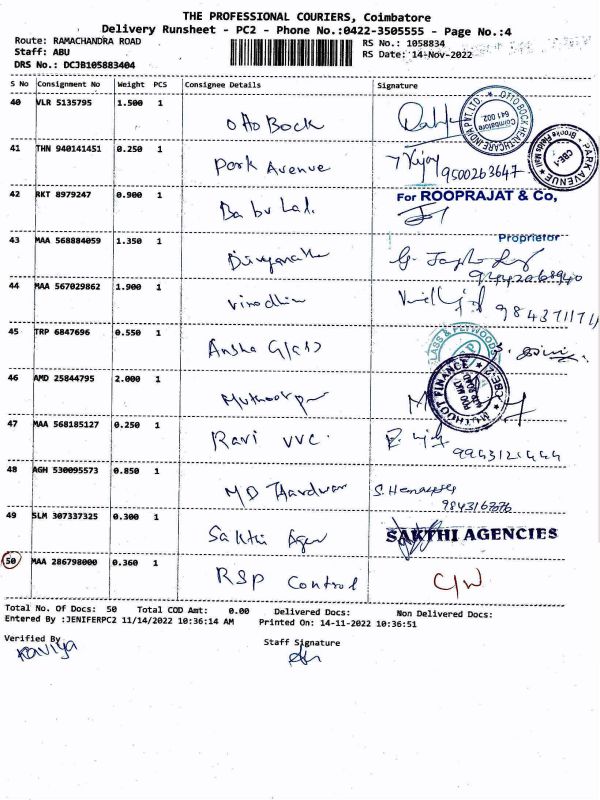 THE PROFESSIONAL COURIERS, Coimbatore
Delivery Runsheet - PC2 - Phone No.:0422-3505555 - Page No.:4
Route: RAMACHANDRA ROAD RS No.: 1058834
Staff: ABU RS Date: 14-Nov-2022
DRS No.: DCJB105883404
S No Consignment No Weight PCS Consignee Details Signature
40 VLR 5135795 1.500 1 Otto Bock OTTO BOCK HEALTHCARE INDIA PVT. LTD. Coimbatore 641 002
41 THN 940141451 0.250 1 Park Avenue Vijay 9500263647 PARK AVENUE Brooke Fields Mall CBE-1
42 RKT 8979247 0.900 1 Babu Lal. For ROOPRAJAT & Co,
Proprietor
43 MAA 568884059 1.350 1
44 MAA 567029862 1.900 1 Vinodhin
45 TRP 6847696 0.550 1 Ansha Glass GLASS & PLYWOODS
46 AMD 25844795 2.000 1 MUTHOOT FINANCE CBE-2
47 MAA 568185127 0.250 1 Ravi VVC. 9943121444
48 AGH 530095573 0.850 1 MD Hardwar
49 SLM 307337325 0.300 1 Sakthi Agen SAKTHI AGENCIES
50 MAA 286798000 0.360 1 RSP Control C/W
Total No. Of Docs: 50 Total COD Amt: 0.00 Delivered Docs: Non Delivered Docs:
Entered By :JENIFERPC2 11/14/2022 10:36:14 AM Printed On: 14-11-2022 10:36:51
Verified By Staff Signature
Kaviya